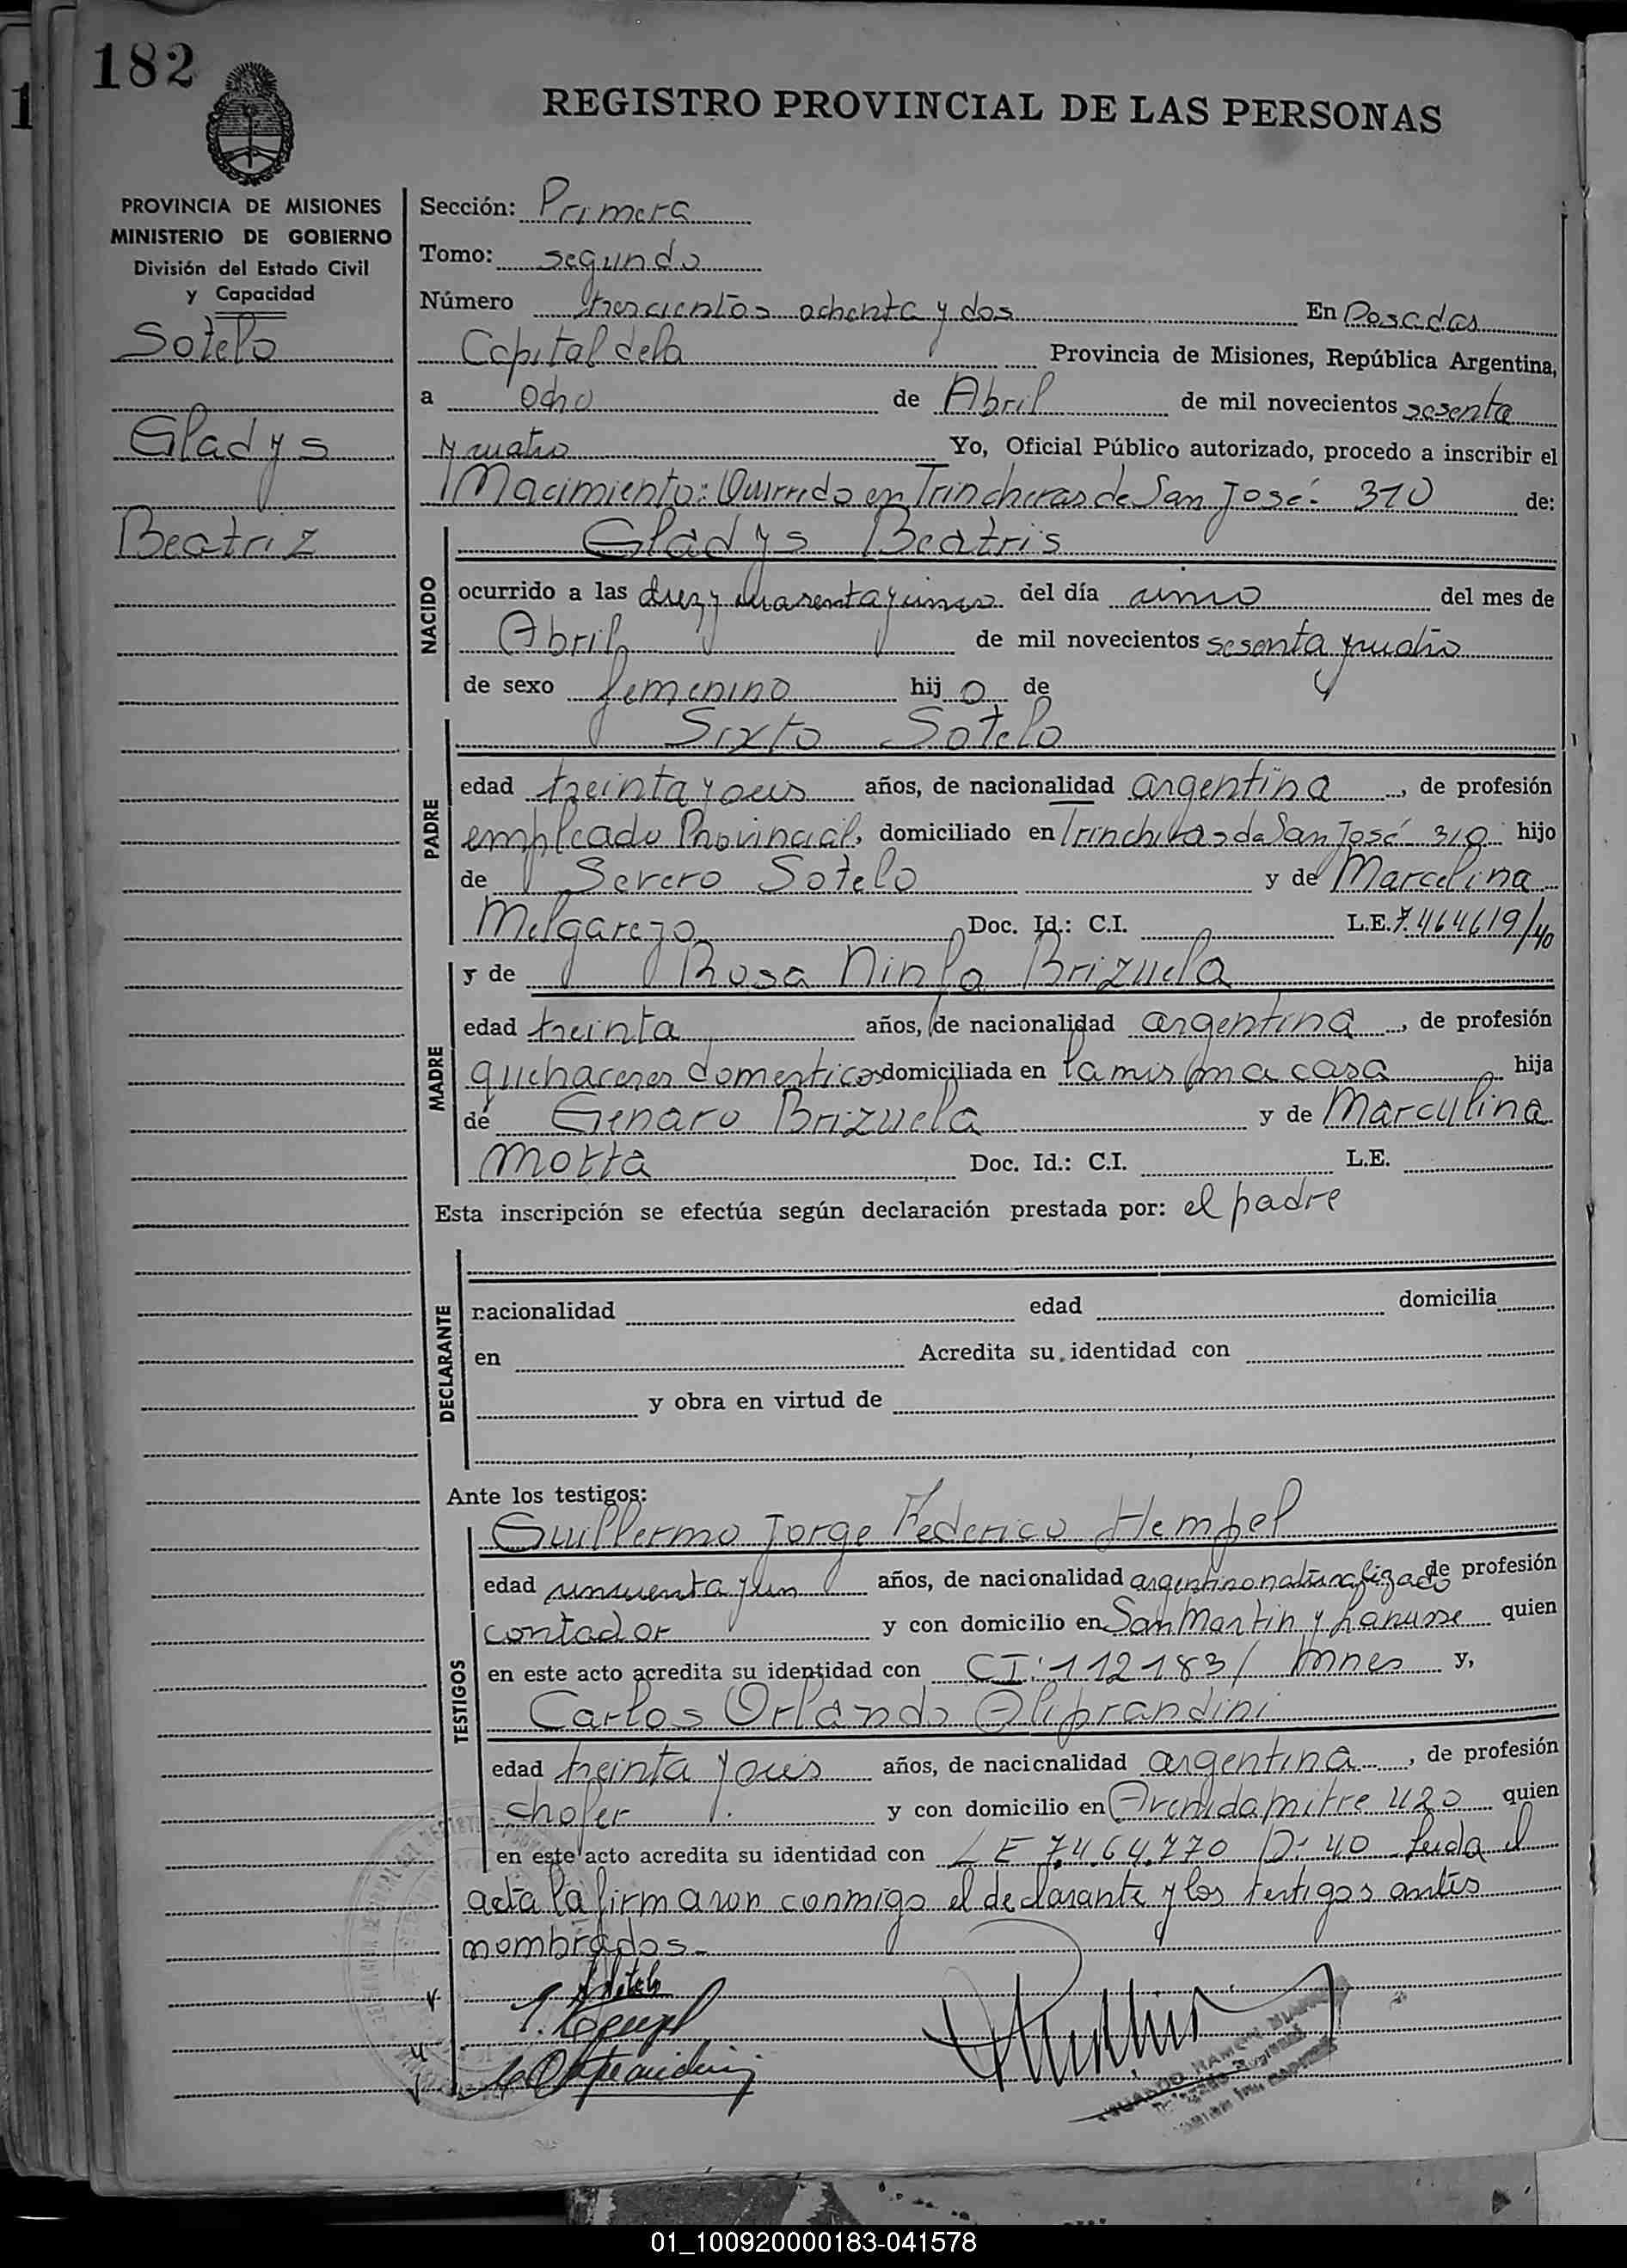 182
REGISTRO PROVINCIAL DE LAS PERSONAS
PROVINCIA DE MISIONES
MINISTERIO DE GOBIERNO
División del Estado Civil
y Capacidad
Sotelo
Gladys
Beatriz
Sección: Primera
Tomo: segundo
Número trescientos ochenta y dos En Posadas
Capital de la Provincia de Misiones, República Argentina,
a ocho de Abril de mil novecientos sesenta
y cuatro Yo, Oficial Público autorizado, procedo a inscribir el
Nacimiento: Ocurrido en Trincheras de San José - 310 de:
NACIDO
Gladys Beatris
ocurrido a las diez y cuarenta y cinco del día uno del mes de
Abril de mil novecientos sesenta y cuatro
de sexo femenino hij o de
PADRE
Sixto Sotelo
edad treinta y seis años, de nacionalidad argentina, de profesión
empleado Provincial, domiciliado en Trincheras de San José 310 hijo
de Severo Sotelo y de Marcelina
Melgarejo Doc. Id.: C.I. L.E. 7.464619/40
MADRE
y de Rosa Ninfa Brizuela
edad treinta años, de nacionalidad argentina, de profesión
quehaceres domesticos domiciliada en la misma casa hija
de Genaro Brizuela y de Marculina
Motta Doc. Id.: C.I. L.E.
Esta inscripción se efectúa según declaración prestada por: el padre
DECLARANTE
nacionalidad edad domicilia
en Acredita su identidad con
y obra en virtud de
Ante los testigos:
TESTIGOS
Guillermo Jorge Federico Hempel
edad cincuenta y un años, de nacionalidad argentino naturalizado de profesión
contador y con domicilio en San Martin y Lanusse quien
en este acto acredita su identidad con CI: 112183/ Mnes y,
Carlos Orlando Oliprandini
edad treinta y seis años, de nacionalidad argentina, de profesión
chofer y con domicilio en Avenida mitre 420 quien
en este acto acredita su identidad con LE 7.464.770 D: 40 Leida el
acta la firmaron conmigo el declarante y los testigos antes
nombrados.-
01_100920000183-041578